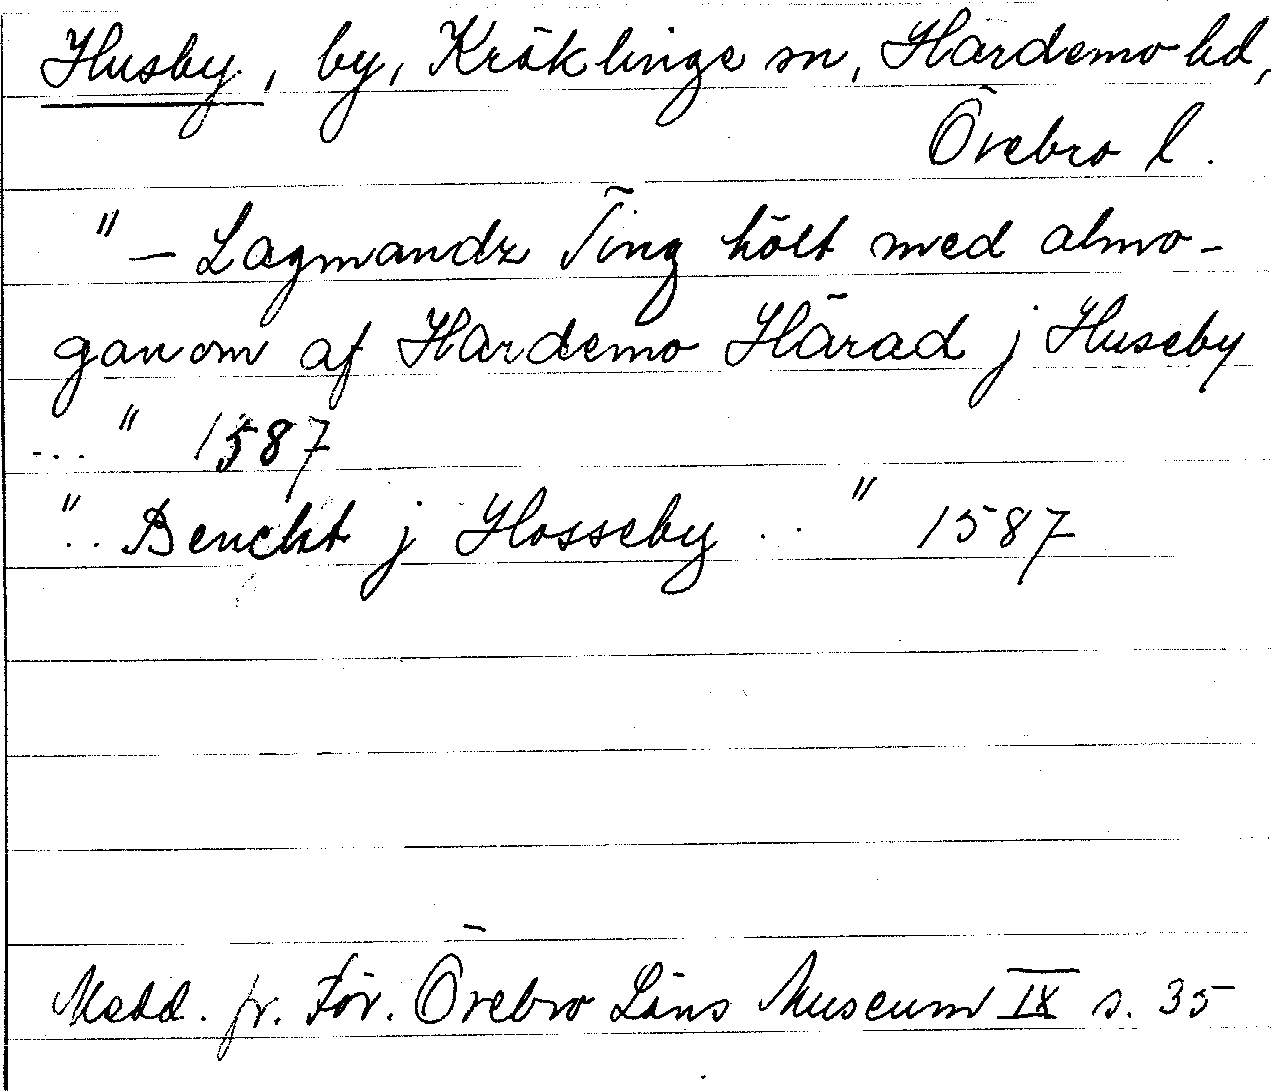 Husby, by, Kräklinge sn, Hardemo hd,
Örebro l.
" — Lagmandz Ting hölt med almo-
ganom af Hardemo Härad j Huseby
... " 1587
".. Benckt j Hosseby .. " 1587
Medd. fr. För. Örebro Läns Museum IX s. 35